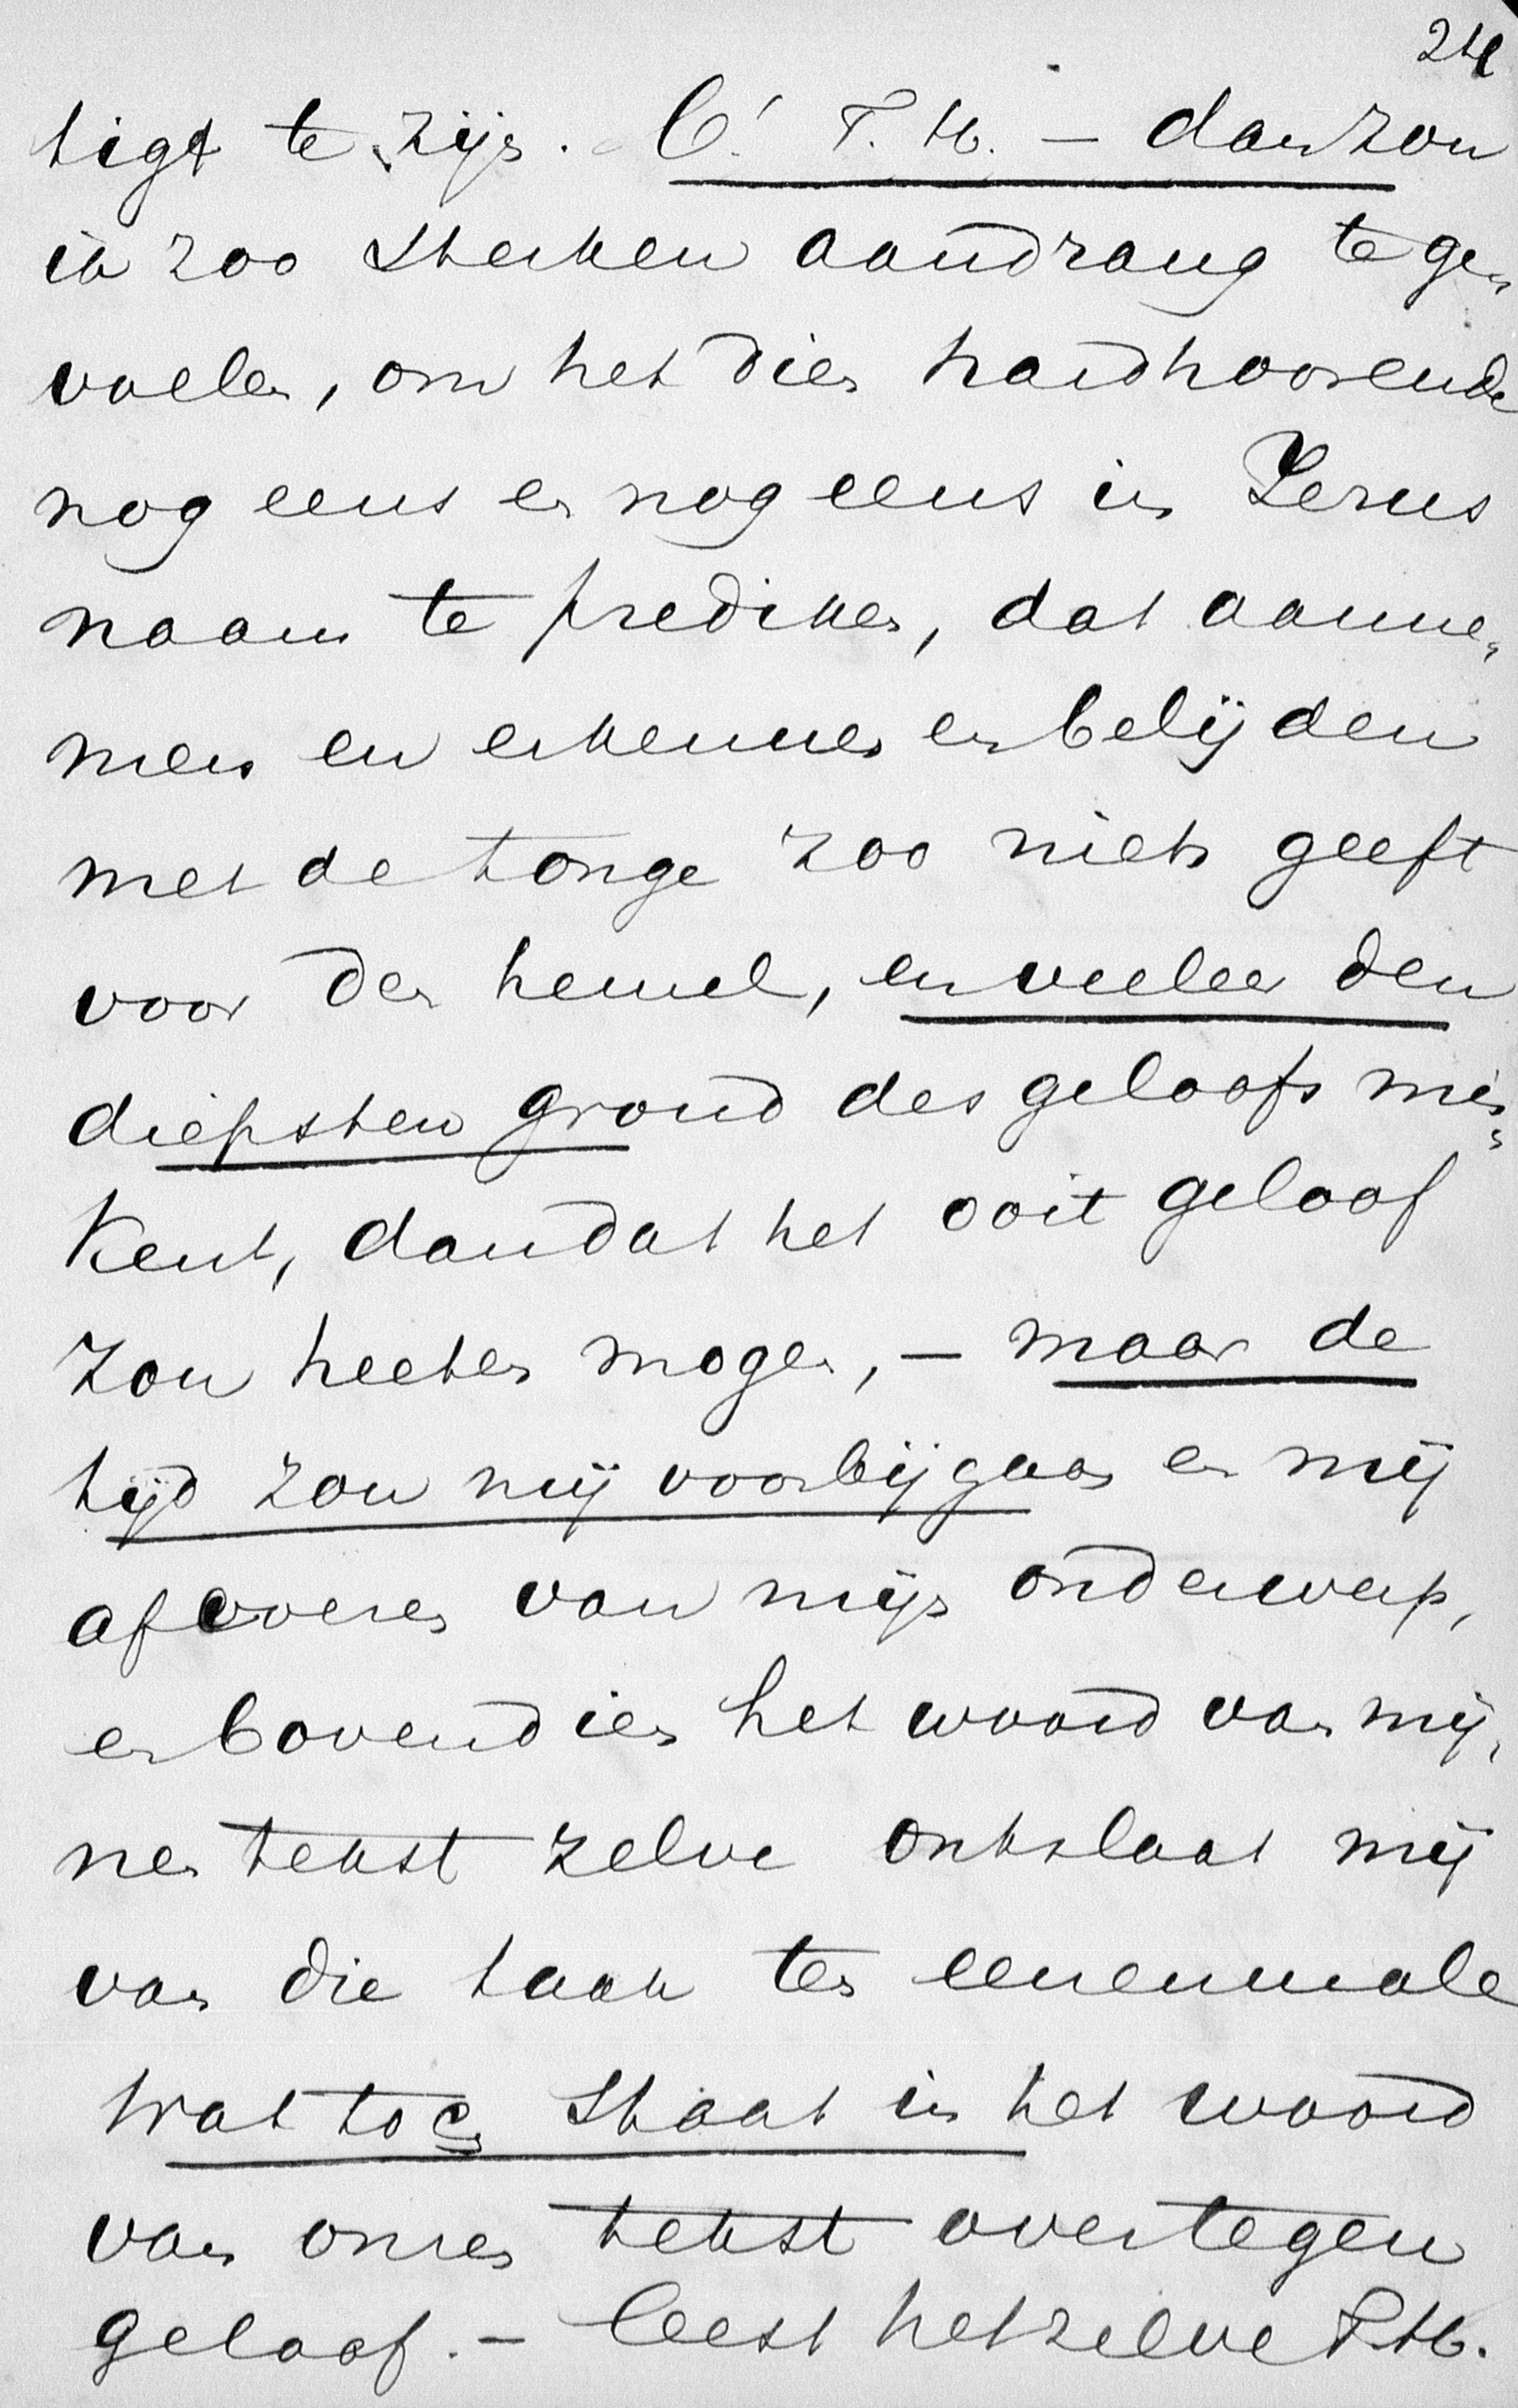 24
tigt te zijn. O! T. H. – dan zou
ik zoo sterken aandrang te ge-
voelen, om het dien hardhoorende
nog eens en nog eens in Jezus
naam te prediken, dat aanne-
men en erkennen en belijden
met de tonge zoo niets geeft
voor den hemel, en veeleer den
diepsten grond des geloofs mis-
kent, dan dat het ooit geloof
zou heeten mogen, – maar de
tijd zou mij voorbijgaan en mij
afvoeren van mijn onderwerp,
en bovendien het woord van mij-
nen tekst zelve ontslaat mij
van die taak ten eenenmale
Wat toch staat in het woord
van onzen tekst over tegen
geloof. – Leest hetzelve T. H.